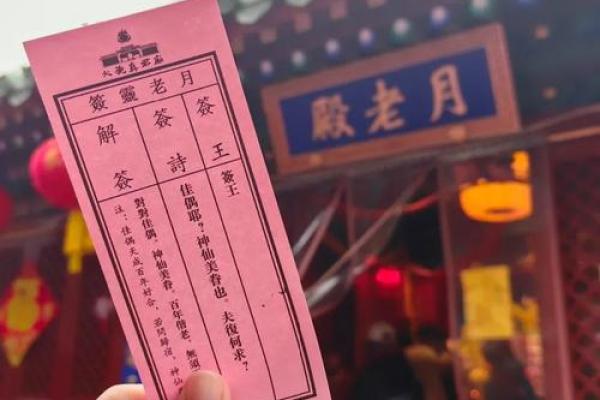 火德真君廟
月老靈簽
簽王
簽王
簽詩
佳偶耶？神仙美眷也。夫復何求？
解簽
對對佳偶。神仙美眷。百年偕老。無須
注：佳偶天成百年好合，若問歸宿，神仙
月老殿